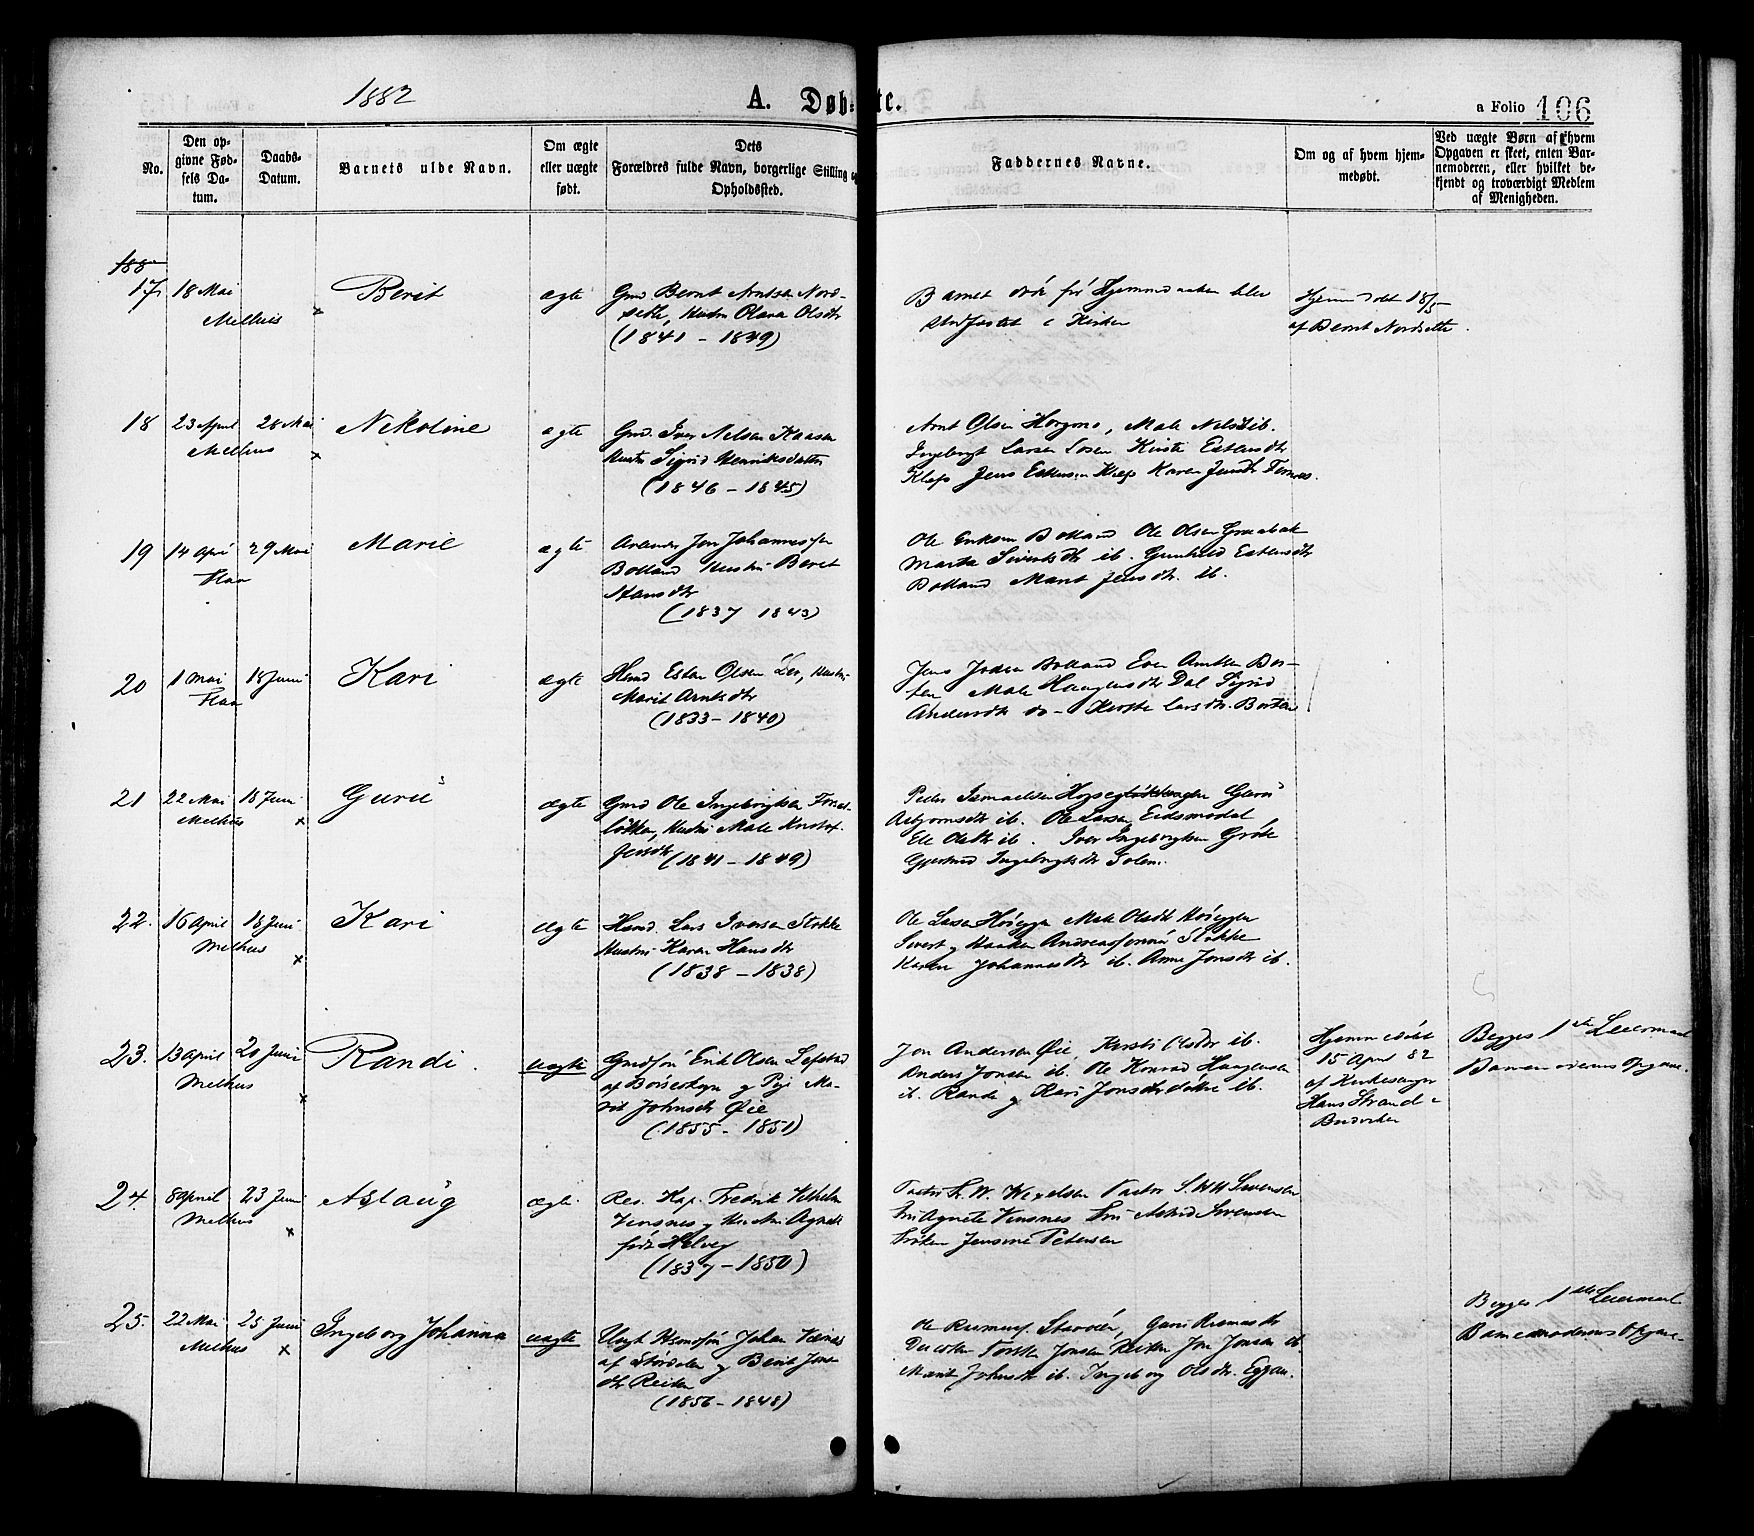 1882
A. Døbte.
a Folio 106
No.
Den opgivne Fødsels Datum.
Daabs-Datum.
Barnets fulde Navn.
Om ægte eller uægte født.
Dets Forældres fulde Navn, borgerlige Stilling og Opholdssted.
Faddernes Navne.
Om og af hvem hjemmedøbt.
Ved uægte Børn af hvem Opgaven er skeet, enten Barnemoderen, eller hvilket bekjendt og troværdigt Medlem af Menigheden.
17 18 Mai
Melhus
Berit
ægte
Gmd Bernt Arntsen Nord-
sette, Hustru Olava Olsdtr
(1841 - 1849)
Barnet døde før Hjemmedaaben blev
stadfæstet i Kirken
Hjemmedøbt 18/5
af Bernt Nordsette.
18 23 April 28 Mai
Melhus x
Nikoline
ægte
Gmd. Iver Nelsen Kaasen
Hustru Sigrid Henriksdatter
(1846 - 1845)
Arnt Olsen Horgmo, Male Nelsd ib.
Ingebrigt Larsen Losen Kirste Estensdtr
Klefs Jens Estensen Klefs Karen Jensdtr
19 14 April 29 Mai
Flaa
Marie
ægte
Jon Johannessen
Bolland Hustru Beret
Hansdtr
(1837 1843)
Ole Eriksen Bolland Ole Olsen
Marta Sivertsdtr ib. Gunhild Estensdtr
Bolland Marit Jensdtr. ib.
20 1 Mai 18 Juni
Flaa
Kari
ægte
Esten Olsen Ler, Hustru
Marit Arntsdtr
(1833 - 1840)
Jens Jonsen Bolland Even Arntsen Bor-
ten Male Haagensdtr Dal Sigrid
Andersdtr do - Kirste Larsdtr. Borten
21 22 Mai 18 Juni
Melhus x
Guru
ægte
Gmd Ole Ingebrigtsen
løkken, Hustru Male Kristof-
fersdtr (1841 - 1849)
Peder Ismaelsen Guru
Asbjørnsdtr ib. Ole Larsen Eidsmodal
Ele Olsdtr ib. Iver Ingebrigtsen
Gjertrud Ingebrigtsdtr
22. 16 April 18 Juni
Melhus x
Kari
ægte
Lars Iversen Stokke
Hustru Karen Hansdtr
(1838 - 1838)
Ole Larsen Høiggen Male Olsdtr Høiggen
Sivert og Haaken Andreassønner Stokke
Karen Johannesdtr ib. Anne Jonsdtr ib.
23. 13 April 20 Juni
Melhus x
Randi.
uægte
Gmdsøn Erik Olsen Lefstad
af Børseskogn og Pige Ma-
rit Johnsdtr Øie
(1855 - 1851)
Jon Andersen Øie, Kirsti Olsdtr ib.
Anders Jonsen ib. Ole Konrad Haagensen
ib. Randi og Kari Jonsdøtre ib.
Hjemmedøbt
15 April 82
af Kirkesanger
Hans Strand
Begges 1ste Leiermaal
Barnemoderens Opgave.
24. 8 April 23 Juni
Melhus x
Aslaug
ægte.
Res. Kap. Fredrik Vilhelm
Vinsnes og Hustru Agnete
født Helveg
(1837 - 1850)
Pastor Fr. W. Wexelsen Pastor Svensen
Fru Agnete Vinsnes Fru Astrid Svensen
Frøken Jensine Petersen
25. 22 Mai 25 Juni
Melhus x
Ingeborg Johanna
uægte
Ungk Johan
af Størdalen og Berit Jons-
dtr Reiten
(1856 - 1848)
Ole
Torsten Jonsen Reiten Jon Jonsen ib
Marit Johnsdtr ib. Ingeborg Olsdtr. Eggan.
Begges 1ste Leiermaal
Barnemoderens Opgave.